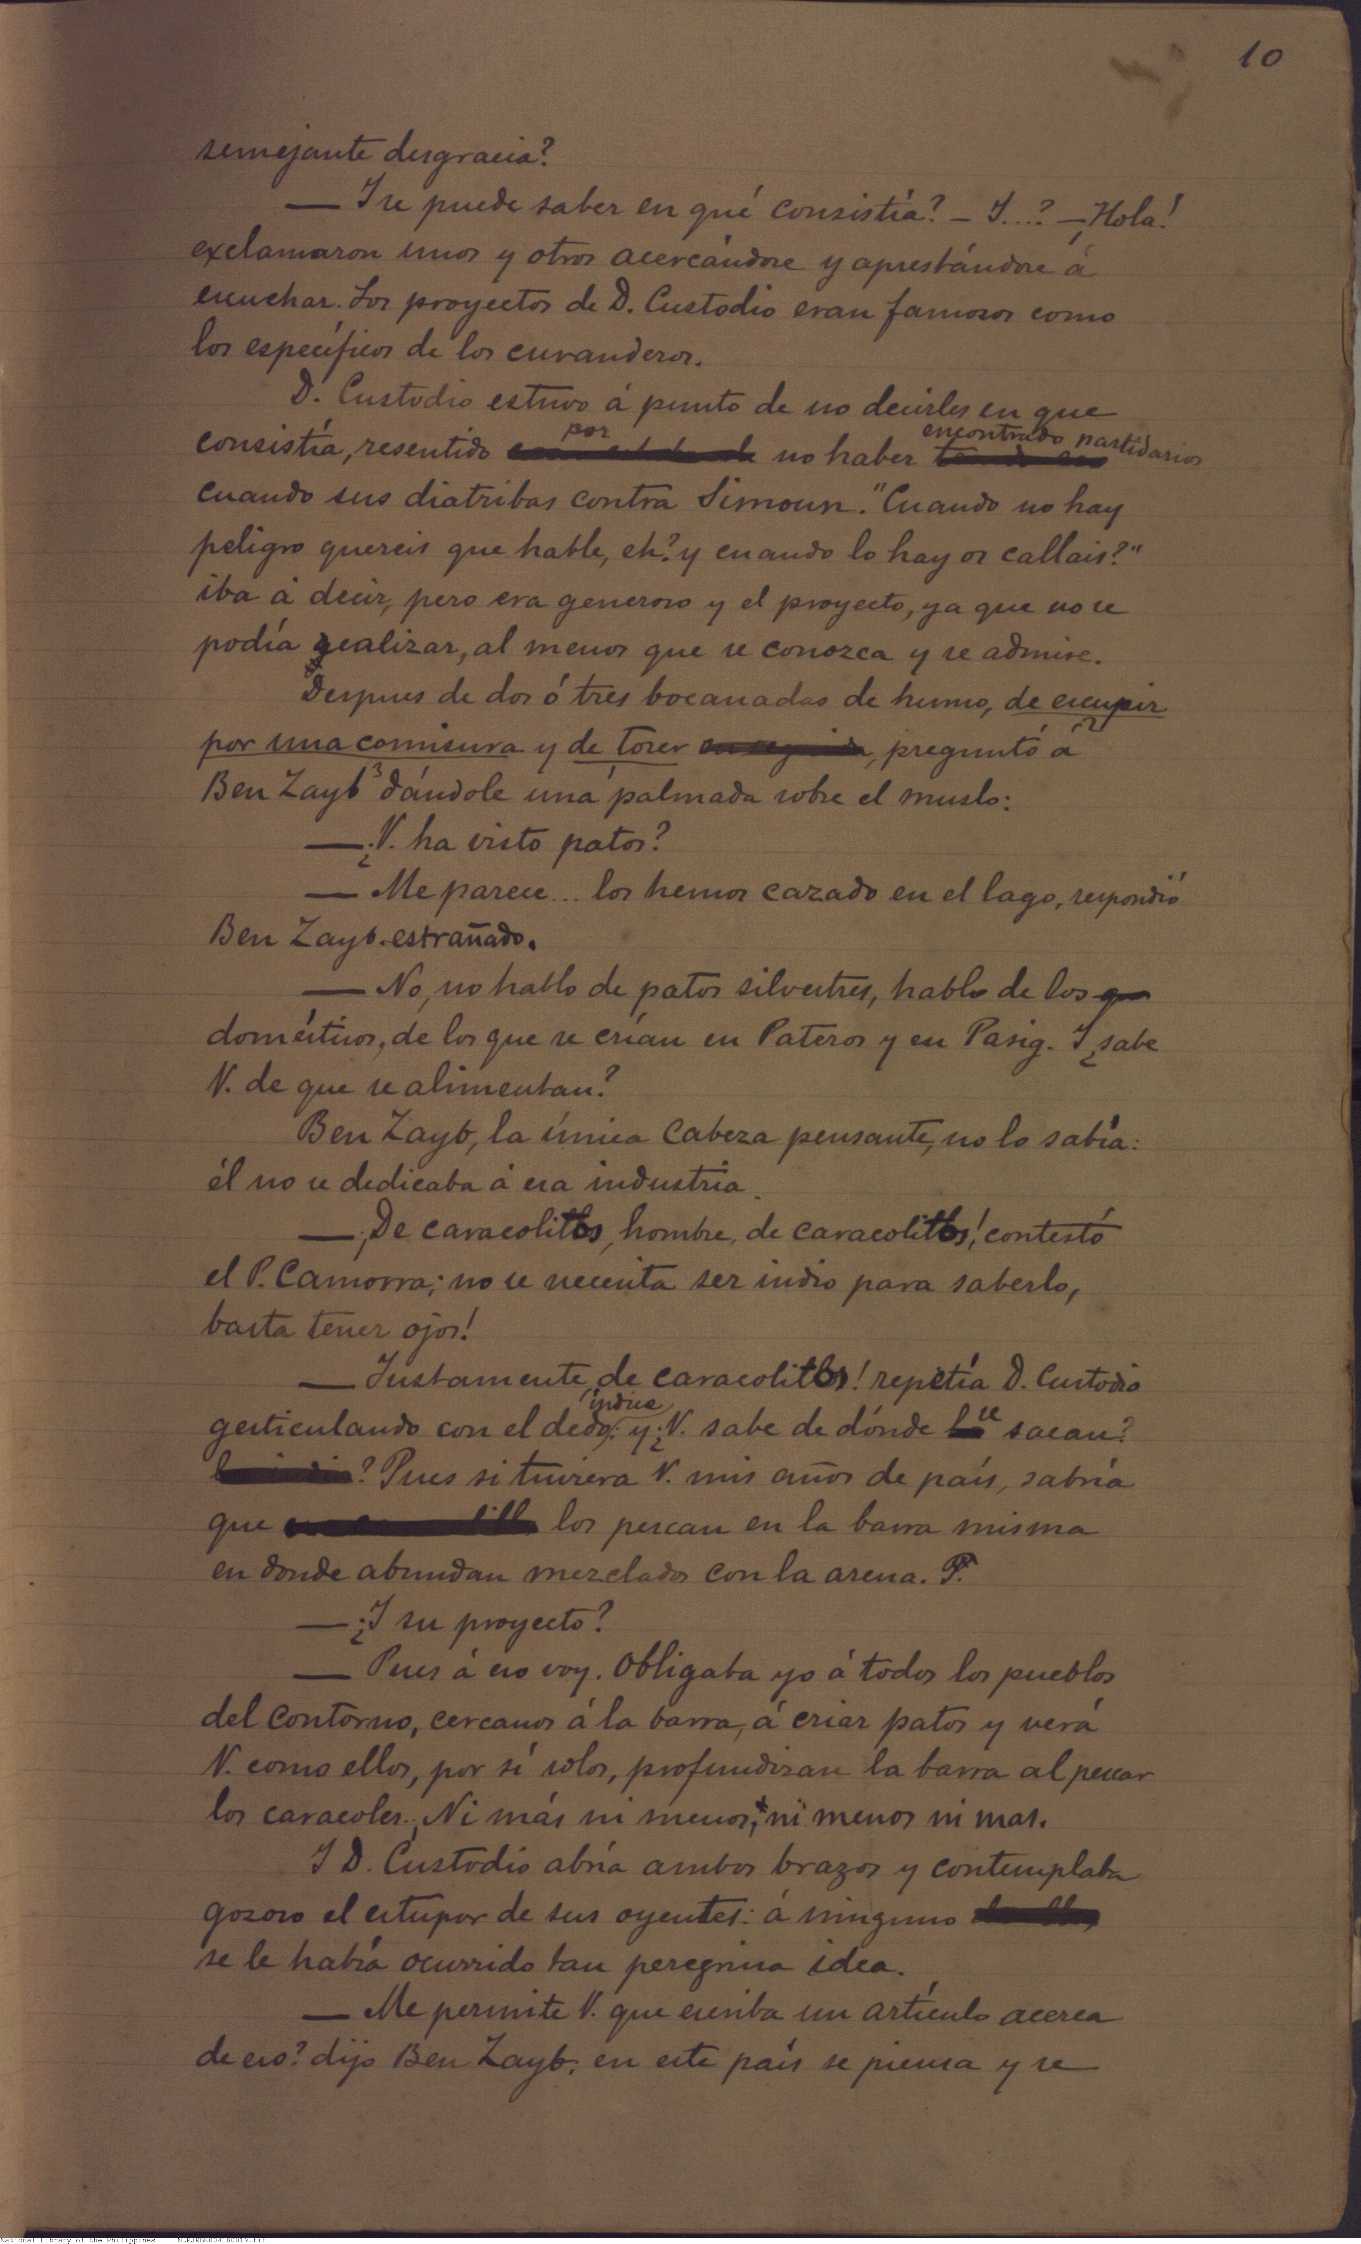 10
semejante desgracia?
— Y se puede saber en qué consistía? – Y...? –¡Hola!
exclamaron unos y otros acercándose y aprestándose á
escuchar. Los proyectos de D. Custodio eran famosos como
los específicos de los curanderos.
D. Custodio estuvo á punto de no decirles en que
consistía, resentido por no haber encontrado partidarios
cuando sus diatribas contra Simoun. "Cuando no hay
peligro quereis que hable, eh? y cuando lo hay os callais?"
iba á decir, pero era generoso y el proyecto, ya que no se
podía realizar, al menos que se conozca y se admire.
Despues de dos ó tres bocanadas de humo, de escupir
por una comisura y de toser, preguntó á 2
Ben Zayb 3 dándole una palmada sobre el muslo:
— ¿V. ha visto patos?
— Me parece... los hemos cazado en el lago, respondió
Ben Zayb estrañado.
— No, no hablo de patos silvestres, hablo de los
domésticos, de los que se crían en Pateros y en Pasig. Y ¿sabe
V. de que se alimentan?
Ben Zayb, la única cabeza pensante, no lo sabía:
él no se dedicaba á esa industria.
— ¡De caracolitos, hombre, de caracolitos! contestó
el P. Camorra; no se necesita ser indio para saberlo,
basta tener ojos!
— Justamente, de caracolitos! repetía D. Custodio
gesticulando con el dedo índice; y ¿V. sabe de dónde se sacan?
? Pues si tuviera V. mis años de país, sabría
que los pescan en la barra misma
en donde abundan mezclados con la arena.
— ¿Y su proyecto?
— Pues á eso voy. Obligaba yo á todos los pueblos
del contorno, cercanos á la barra, á criar patos y verá
V. como ellos, por sí solos, profundizan la barra al pescar
los caracoles. ¡Ni más ni menos, ni menos ni mas.
Y D. Custodio abría ambos brazos y contemplaba
gozoso el estupor de sus oyentes: á ninguno
se le había ocurrido tan peregrina idea.
— Me permite V. que escriba un artículo acerca
de eso? dijo Ben Zayb; en este país se piensa y se
National Library of the Philippines